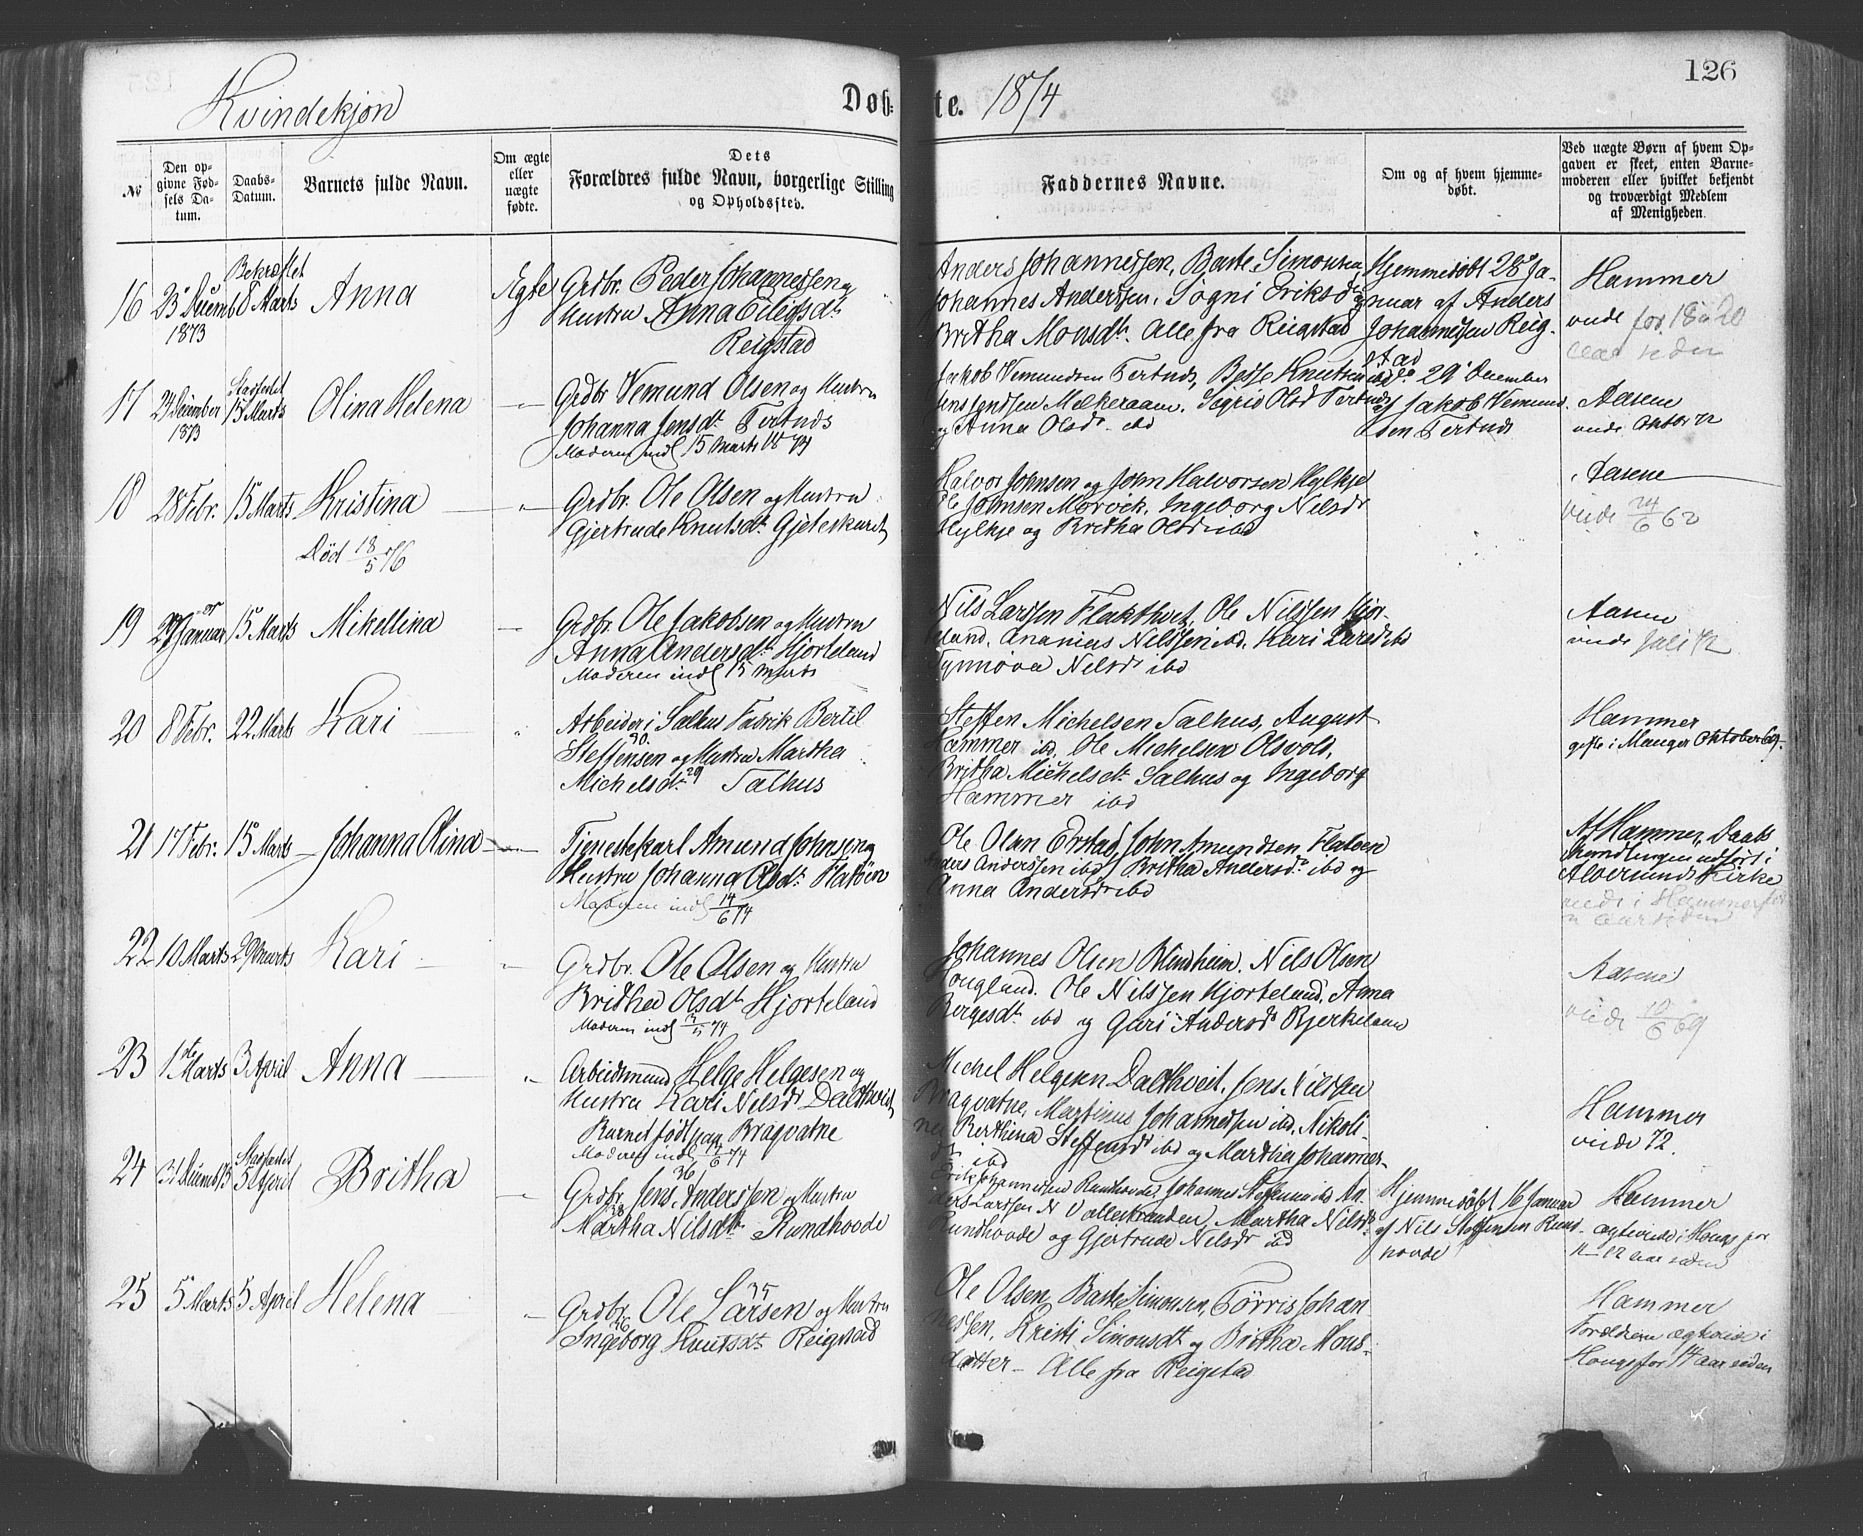 126
Kvindekjøn
Døbte. 1874
No
Den opgivne Fødsels Datum.
Daabs-Datum.
Barnets fulde Navn.
Om ægte eller uægte fødte.
Dets Forældres fulde Navn, borgerlige Stilling og Opholdssted.
Faddernes Navne.
Om og af hvem hjemmedøbt.
Ved uægte Børn af hvem Opgaven er skeet, enten Barnemoderen eller hvilket bekjendt og troværdigt Medlem af Menigheden.
16
23 Decemb 1873
Bekræftet 8 Marts
Anna
Ægte
Grdbr. Peder Johannessen og
Hustru Anna
Reigstad
Anders Johannessen, Simonsen,
Johannes Anderssen, Eriksd og
Britha Monsdt. Alle fra Reigstad
Hjemmedøbt 28 Ja-
nuar af Anders
Johannessen Reig-
stad
Hammer
viede for 18 a 20
aar siden
17
29 December 1873
Stadfestet 15 Marts
Olina Helena
Grdbr Vemund Olsen og Hustru
Johanna Jensdt. Tertnes
Moderen indl 15 Marts 1874
Jakob Vemundsen Tertnes, Knutsen ibd
Jensen Melkeraaen. Sigrid Olsd Tertnes
og Anna Olsdr ibd
29 December
af Jakob Vemund-
sen Tertnes
Aasene
viede Oktbr 72
18
28 Febr.
15 Marts
Kristina
Død 18/5 76
Grdbr. Ole Olsen og Hustru
Gjertrude Knutsdt. Gjeteskaret
Halvor Johnsen og John Halvorsen Hylkje
Ole Johnsen Morvik, Ingeborg Nilsdr
Hylkje og Britha Olsdr ibd
Aasene
viede 24/6 62
19
Januar
15 Marts
Mikellina
Grdbr. Ole Jakobsen og Hustru
Anna Andersdt. Hjorteland
Moderen indl 15 Marts
Nils Larssen Flaktveit, Ole Nilssen Hjor-
teland, Ananias Nilssen ibd. Kari
Synnøva Nilsdr ibd
Aasene
viede Juli 72
20
8 Febr.
22 Marts
Kari
Arbeider i Salhus Fabrik Bertil
Steffensen 30. og Hustru Martha
Michelsdt. 29 Salhus
Steffen Michelsen Salhus, August
Hammer ibd. Ole Michelsen Olsvold,
Britha Michelsdt. Salhus og Ingeborg
Hammer ibd
Hammer
gifte i Manger Oktober 69.
21
17 Febr.
15 Marts
Johanna Olina
Tjenestekarl Amund Johnsen og
Hustru Johanna Olsdt. Flatøen
Moderen indl 14/6 74
Ole Olsen Erstad, John Amundsen Flatøen
Anders Anderssen ibd, Britha Andersdr ibd og
Anna Andersdr ibd
Af Hammer, Daabs
handlingen udført i
Alversunds Kirke
viede i Hammer for
aar siden
22
10 Marts
29 Marts
Kari
Grdbr. Ole Olsen og Hustru
Britha Olsdt. Hjorteland
Moderen indl 74
Johannes Olsen Blindheim. Nils Olsen
Hougland. Ole Nilssen Hjorteland, Anna
Børgesdt. ibd og Guri Andersdr Bjerkelaae
Aasene
viede 10/6 69
23
1ste Marts
3 April
Anna
Arbeidsmand Helge Helgesen og
Hustru Kari Nilsdr Dalthveit
Barnet født paa Bragvatne
Moderen indl 14/6 74
Michel Helgesen Dalthveit, Jens Nilssen
Bragvatne, Martinus Johannessen ibd. Nikoli-
ne Berthina Steffensdt ibd og Martha Johannes-
dr ibd
Hammer
viede 72.
24
31 Decemb 73
Stadfestet 5 April
Britha
Grdbr. Jens Anderssen 36 og Hustru
Martha Nilsdt. 38 Rundhovde
Erik Johannessen Rundhovde, Johannes Steffensen ibd, An-
ders Larssen N Vollestranden, Martha Nilsdr
Rundhovde og Gjertrude Nilsdr ibd
Hjemmedøbt 16 Januar
af Nils Steffensen Rund-
hovde
Hammer
ægteviede i Hougs for
11 - 12 aar siden
25
5 Marts
5 April
Helena
Grdbr. Ole Larsen 35 og Hustru
Ingeborg Knutsdt. 26 Reigstad
Ole Olsen, Simonsen, Tørris Johan-
nessen, Kristi Simonsdt og Britha Mons-
datter - Alle fra Reigstad
Hammer
Forældrene ægteviede i
Hougs for 14 aar siden